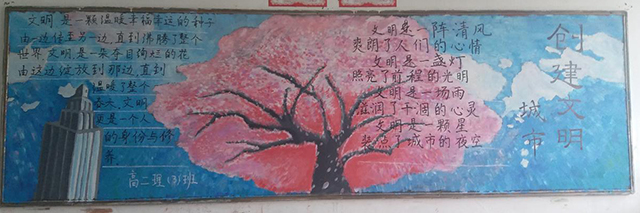 创建文明
城市
文明是一颗温暖幸福幸运的种子
由一边传至另一边,直到沸腾了整个
世界文明是一朵夺目绚烂的花
由这边绽放到那边,直到
温暖了整个
春天,文明
更是一个人
的身份与
养
高二班(3)班
文明是一阵清风
炎朗了人们的心情
文明是一盏灯
照亮了前程的光明
文明是一场雨
滋润了干涸的心灵
文明是一颗星
装点了城市的夜空